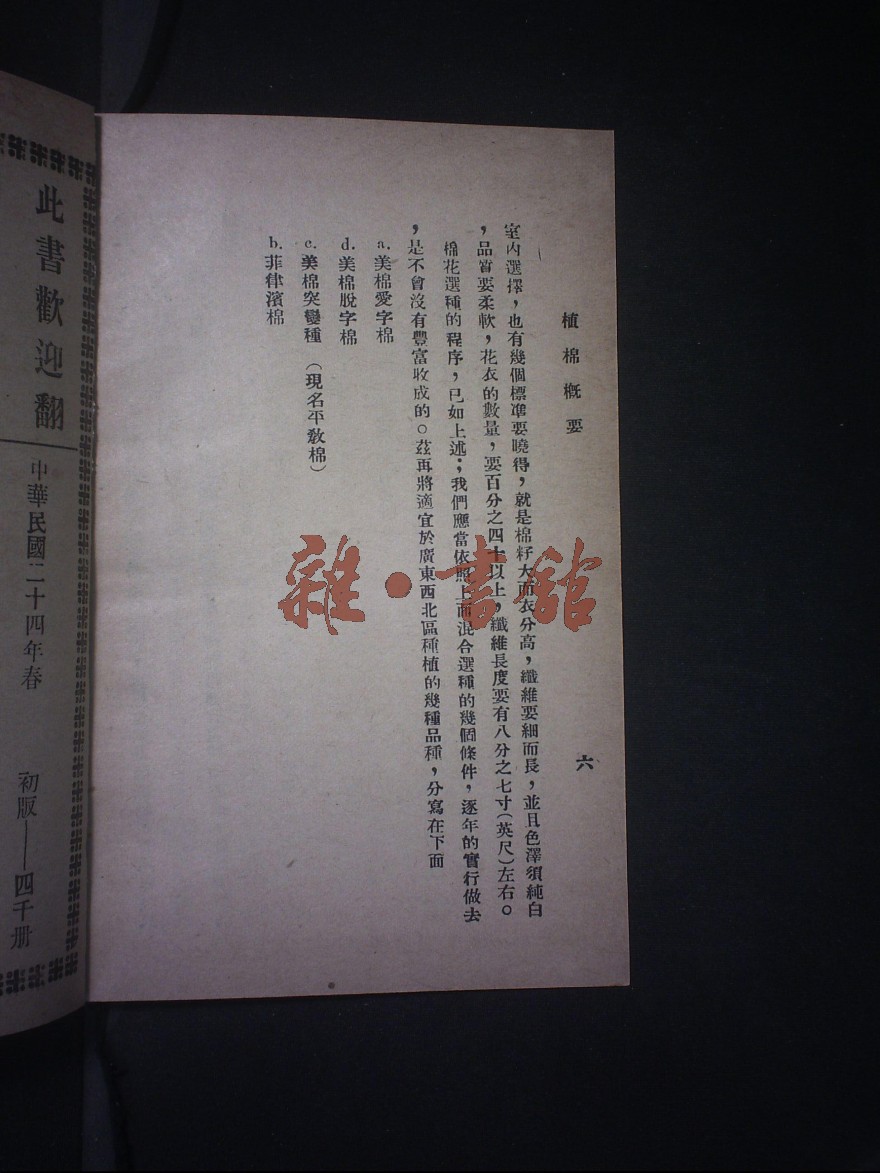 植棉概要
六
室內選擇，也有幾個標準要曉得，就是棉籽大而衣分高，纖維要細而長，並且色澤須純白
，品質要柔軟，花衣的數量，要百分之四十以上，纖維長度要有八分之七寸（英尺）左右。
棉花選種的程序，已如上述；我們應當依照上面混合選種的幾個條件，逐年的實行做去
，是不會沒有豐富收成的。茲再將適宜於廣東西北區種植的幾種品種，分寫在下面
a. 美棉愛字棉
d. 美棉脫字棉
c. 美棉突變種（現名平教棉）
b. 菲律濱棉
此書歡迎翻
中華民國二十四年春
初版——四千册
雜·書館